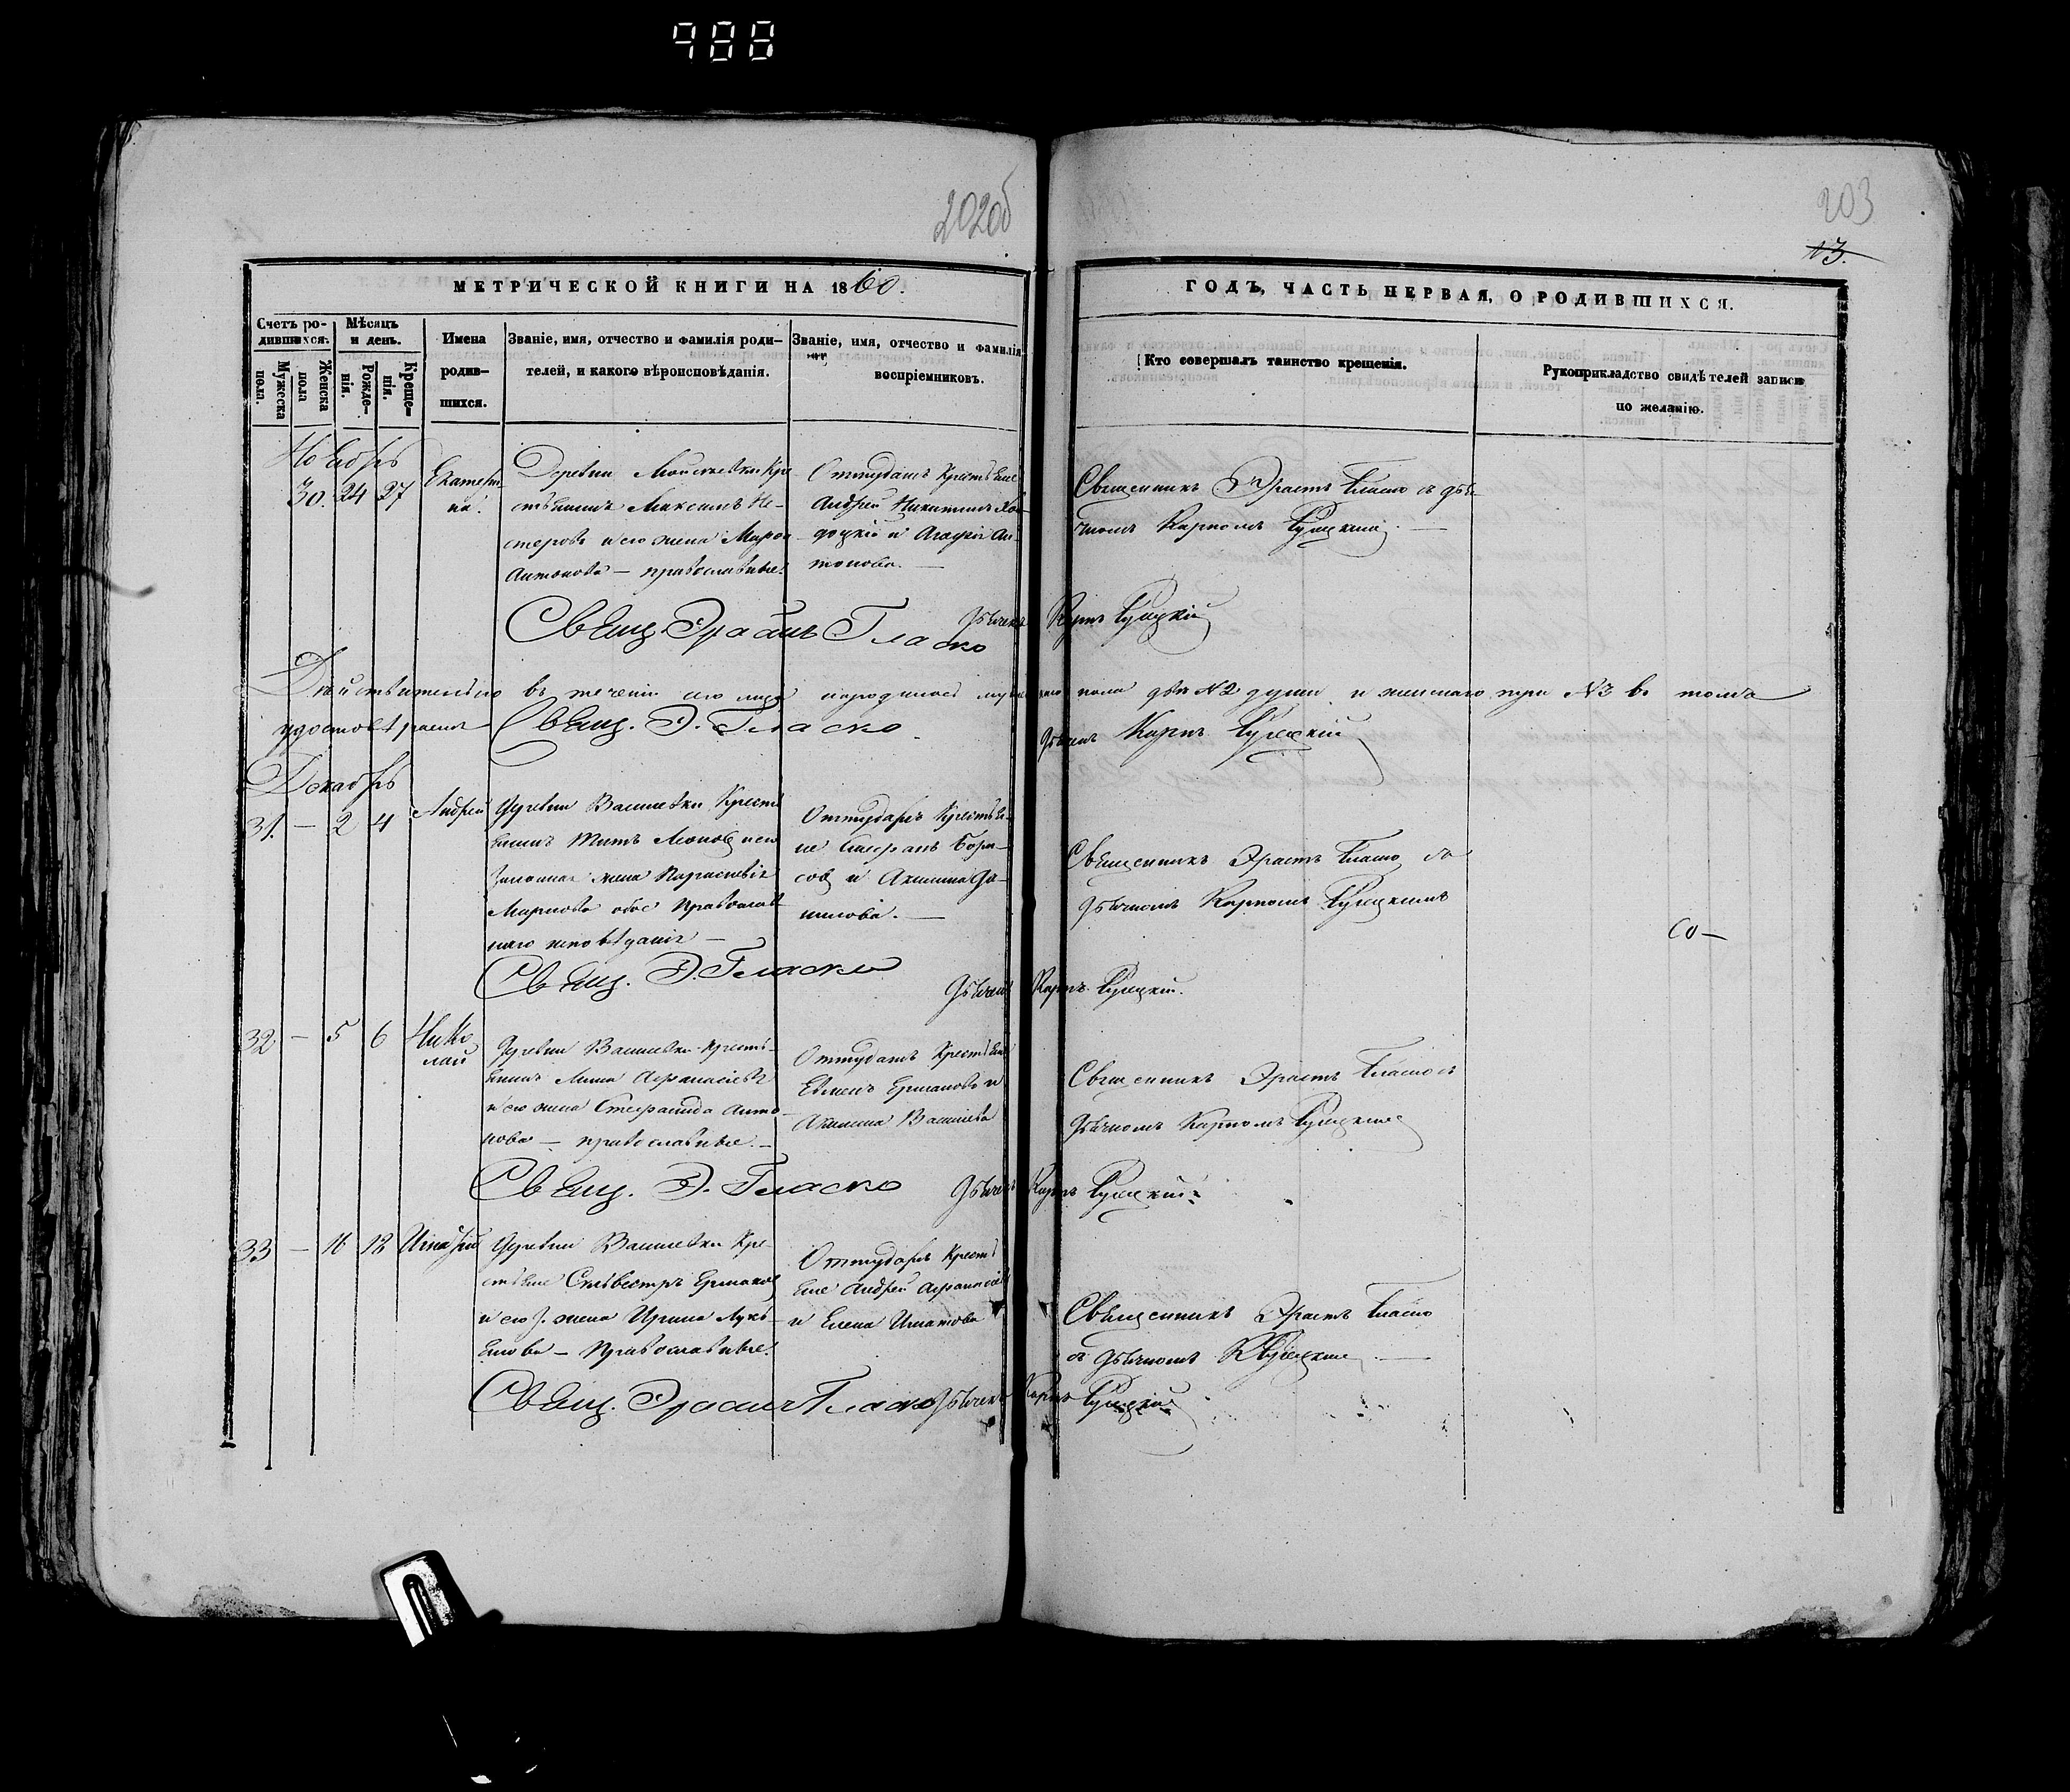 988
202об
203
13.
МЕТРИЧЕСКОЙ КНИГИ НА 1860.
ГОДЪ, ЧАСТЬ ПЕРВАЯ, О РОДИВШИХСЯ.
Счетъ ро-
дившихся.
Мужеска
пола.
Женска
пола
Мѣсяцъ
и день.
Рожде-
нія.
Креще-
нія.
Имена
родив-
шихся.
Званіе, имя, отчество и фамилія роди-
телей, и какого вѣроисповѣданія.
Званіе, имя, отчество и фамилія
воспріемниковъ.
Кто совершалъ таинство крещенія.
Рукоприкладство свидѣтелей записи
по желанію.
Ноябрь
30. 24 27
Екатери-
на.
Деревни Кре
стьянинъ Максимъ Не-
стеровъ и его жена
Антонова — православные.
Оттудажъ Крестьяне
Андрей Никитинъ
и Агафія Ан-
тонова. —
Священникъ Эрастъ Гласко съ дья-
чкомъ Карпомъ
Свящ. Эрастъ Гласко
Дьячекъ Карпъ
Дѣйствительно въ теченіи сего мца народилось мужескаго пола двѣ №2 души и женскаго три №3 въ томъ
удостовѣряемъ Свящ. Э. Гласко.
Дьячекъ Карпъ
Декабрь
31. — 2 4
Андрей
Деревни Василевки Кресть
янинъ Титъ и его
законная жена Параскевія
Маркова обое Православ
наго исповѣданія —
Оттудажъ Крестья-
не Стефанъ Бори-
совъ и Акилина Да-
нилова. —
Священникъ Эрастъ Гласко съ
дьячкомъ Карпомъ
Свящ. Э. Гласко
Дьячекъ Карпъ
32 — 5 6
Нико
лай
Деревни Василевки Кресть-
янинъ Афанасіевъ
и его жена Стефанида Анто-
нова — православные. —
Оттудажъ Крестьяне
Евменъ Ермаковъ и
Акилина Василева
Священникъ Эрастъ Гласко съ
дьячкомъ Карпомъ
Свящ. Э. Гласко
Дьячекъ Карпъ
33 — 16 18
Деревни Василевки Кре
стьяне Сильвестръ Ермаковъ
и его з. жена Ирина Лукь
янова — Православные.
Оттудажъ Кресть
яне Андрей Афанасіевъ
и Елена Игнатова
Священникъ Эрастъ Гласко
съ дьячкомъ
Свящ. Эрастъ Гласко
Дьячекъ Карпъ